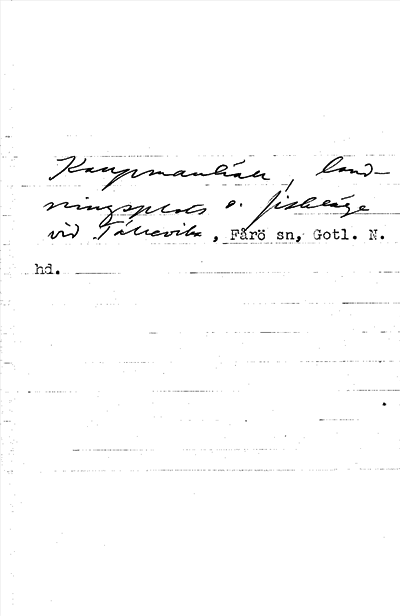 Kaupmanhään, land-
ningsplats o. fiskläge
vid Tällevika, Fårö sn, Gotl. N.
hd.